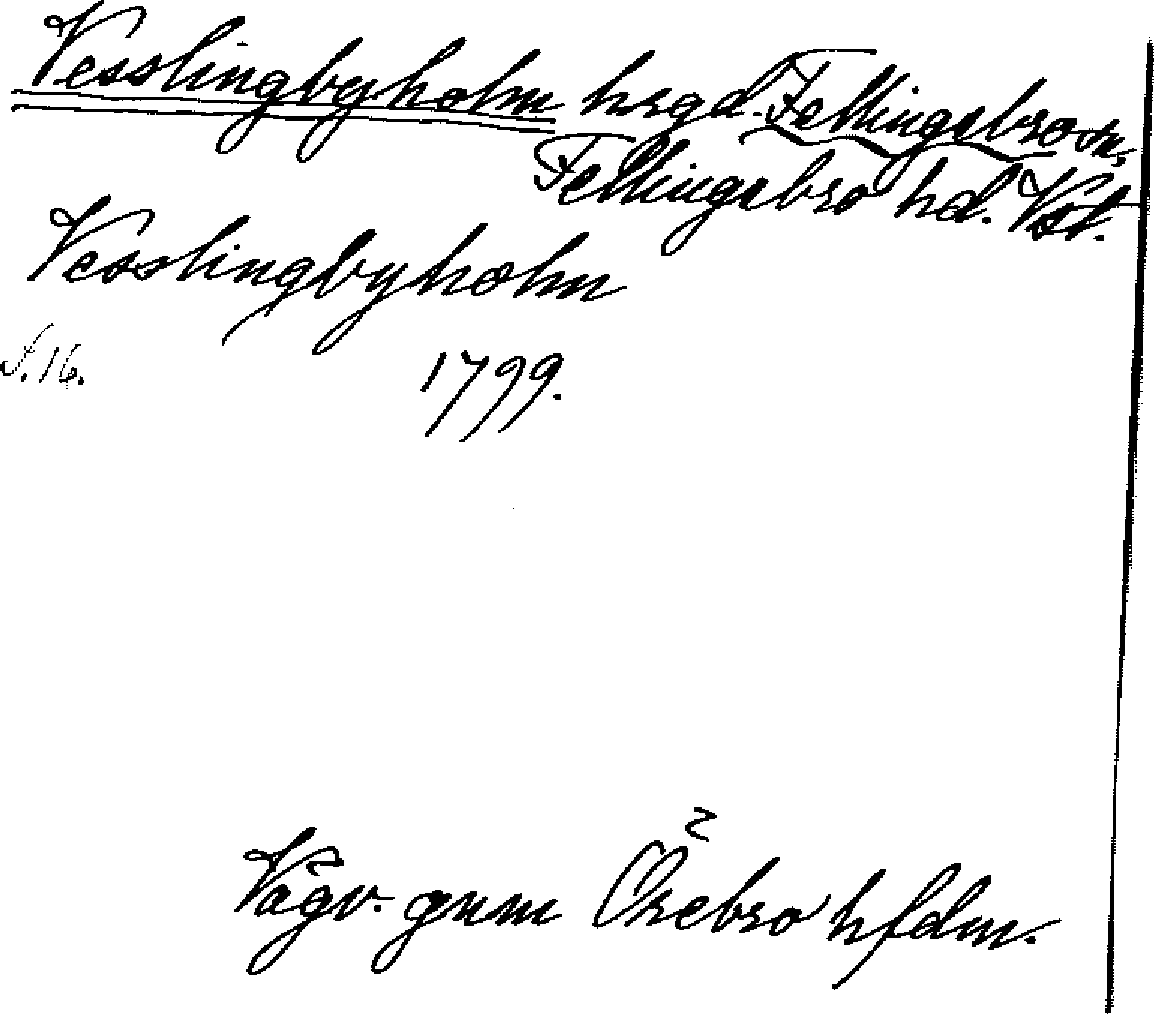 Vesslingbyholm hrgd. Fellingsbro sn,
Fellingsbro hd. Vstl.
Vesslingbyholm
S. 16. 1799.
Vägv. gnm Örebro hfdm.